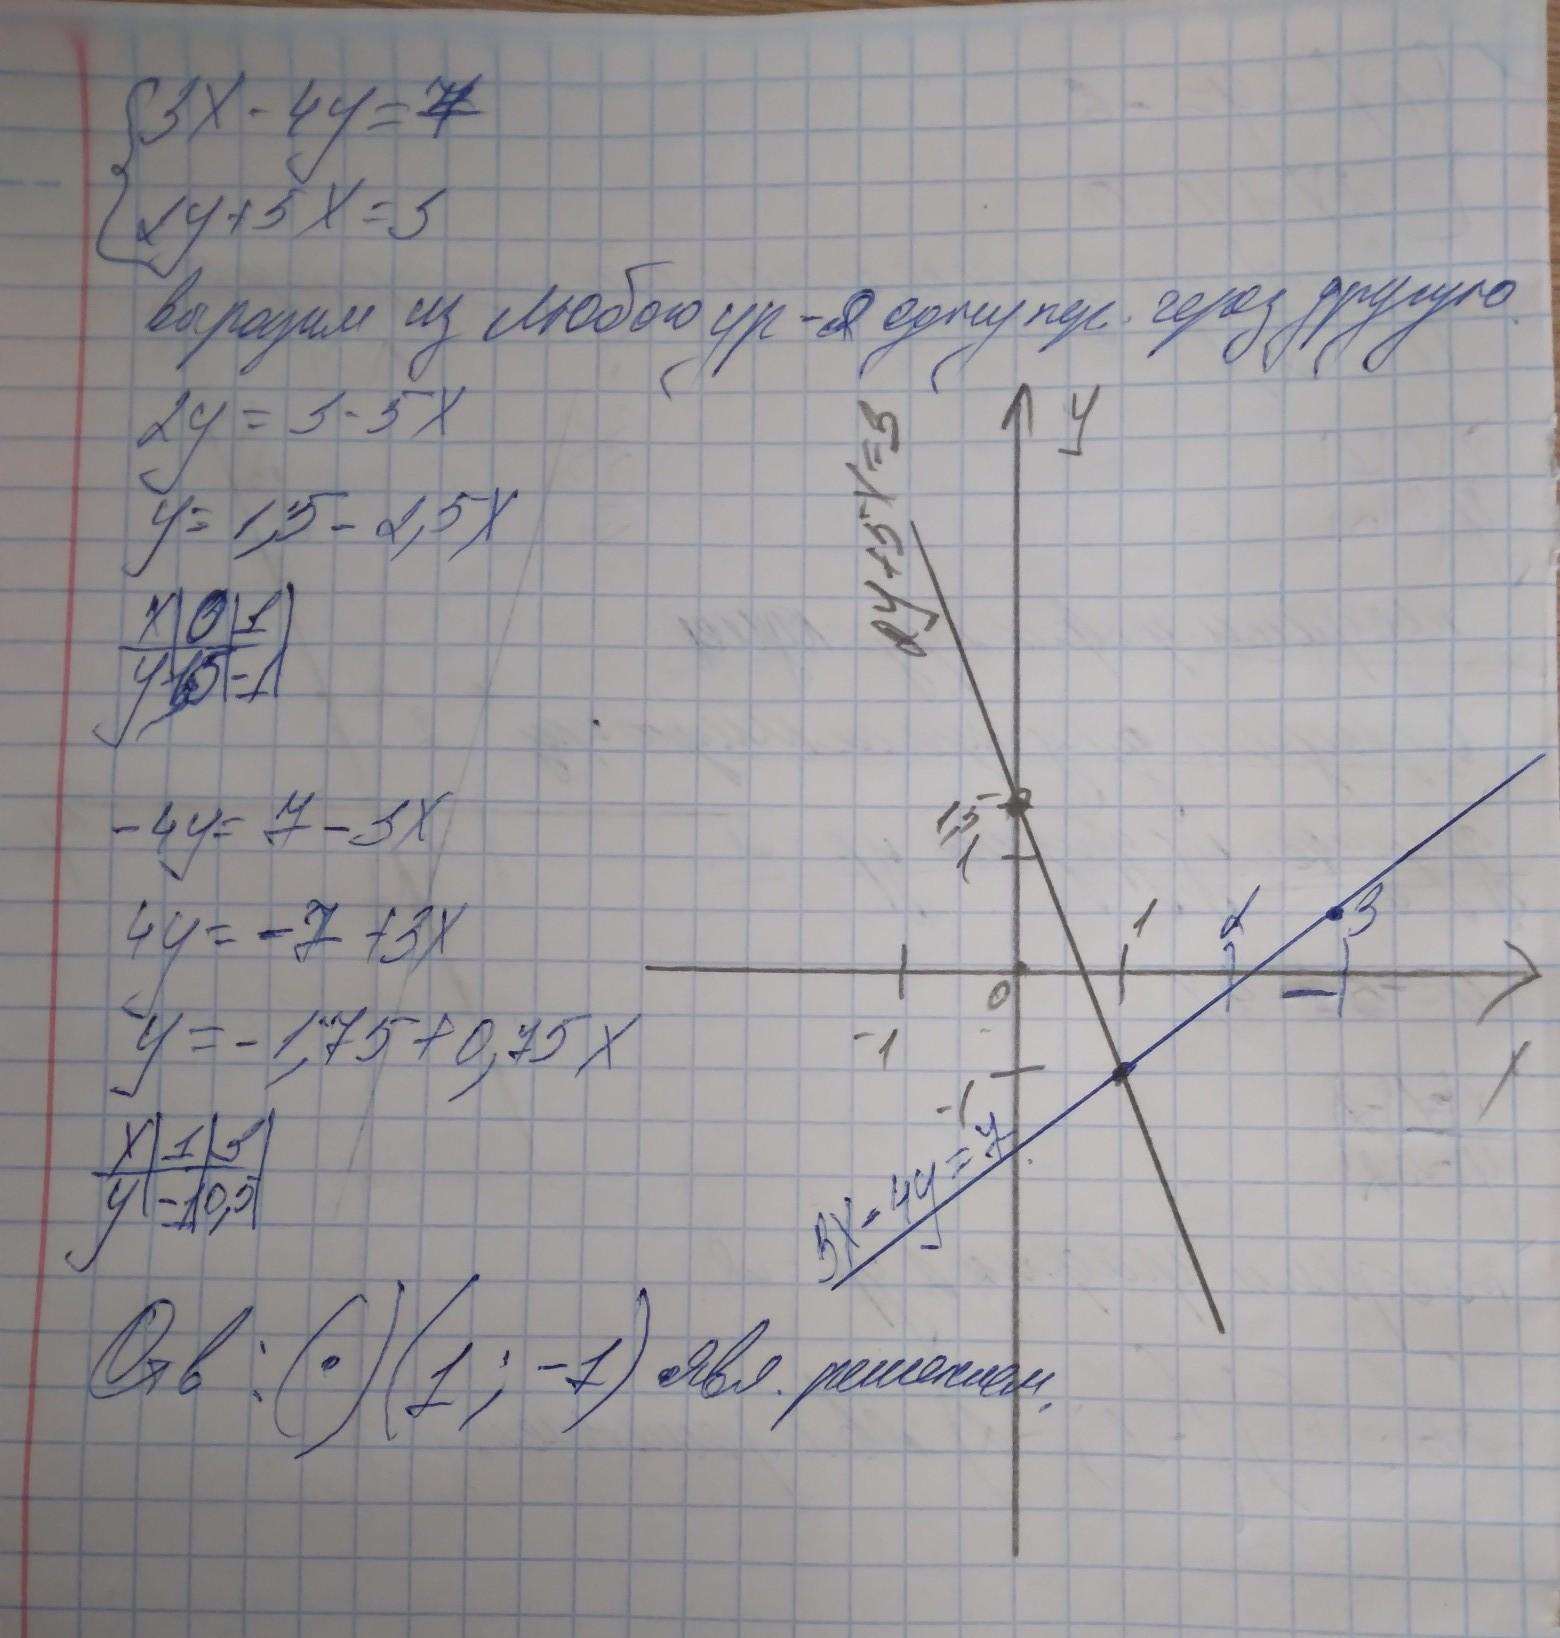 3x - 4y = 7
2y + 5x = 3
выразим из любого ур-я одну пер. через другую.
2y = 3 - 5x
y = 1,5 - 2,5x
x | 0 | 1
y | 1,5 | -1
-4y = 7 - 3x
4y = -7 + 3x
y = -1,75 + 0,75x
x | 1 | 3
y | -1 | 0,5
Отв: (•) (1; -1) явл. решением.
2y+5x=3
y
1,5
1
0
-1
1
2
3
x
-1
3x - 4y = 7